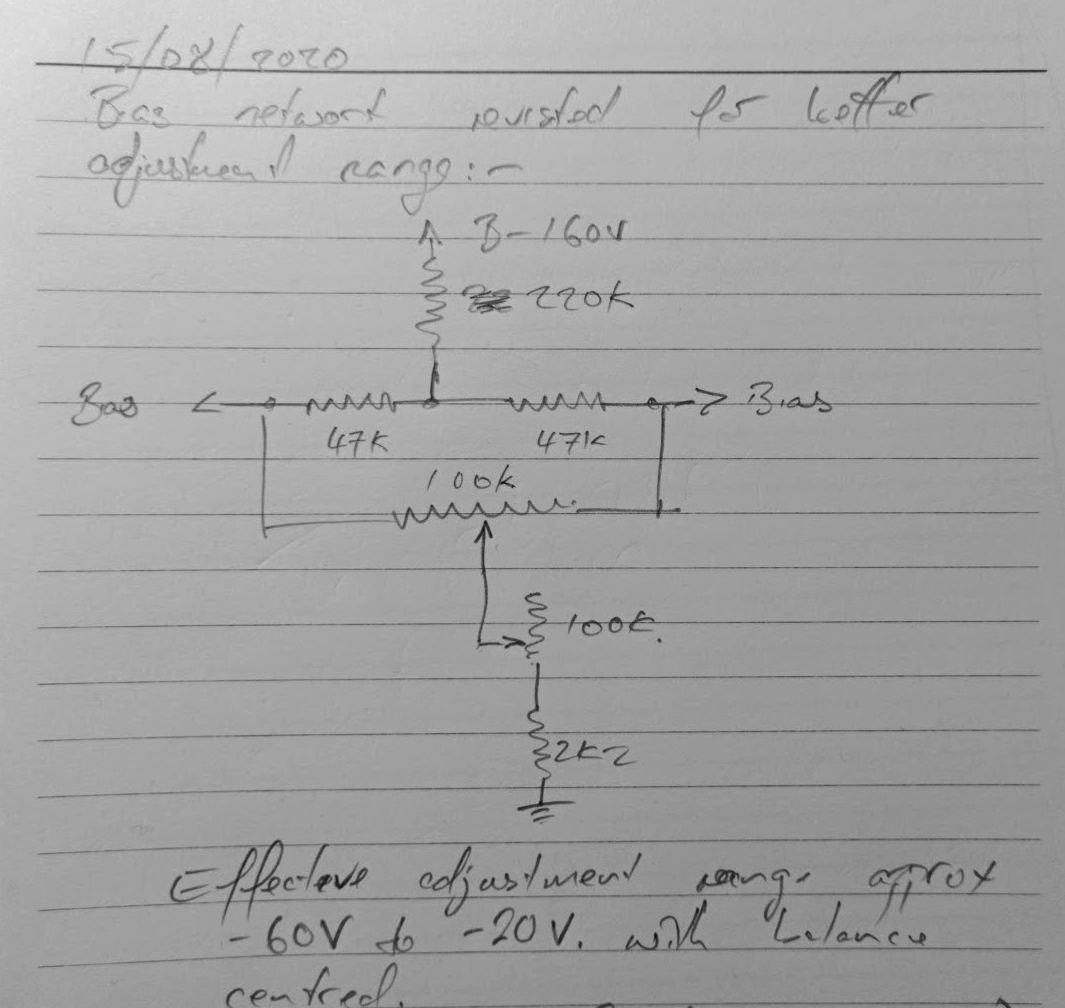 15/08/2020
Bias network revisted for better
adjustment range:-
B-160V
220K
Bias
Bias
47K
47K
100K
100K.
2K2
Effective adjustment range approx
-60V to -20V. with balance
centred.